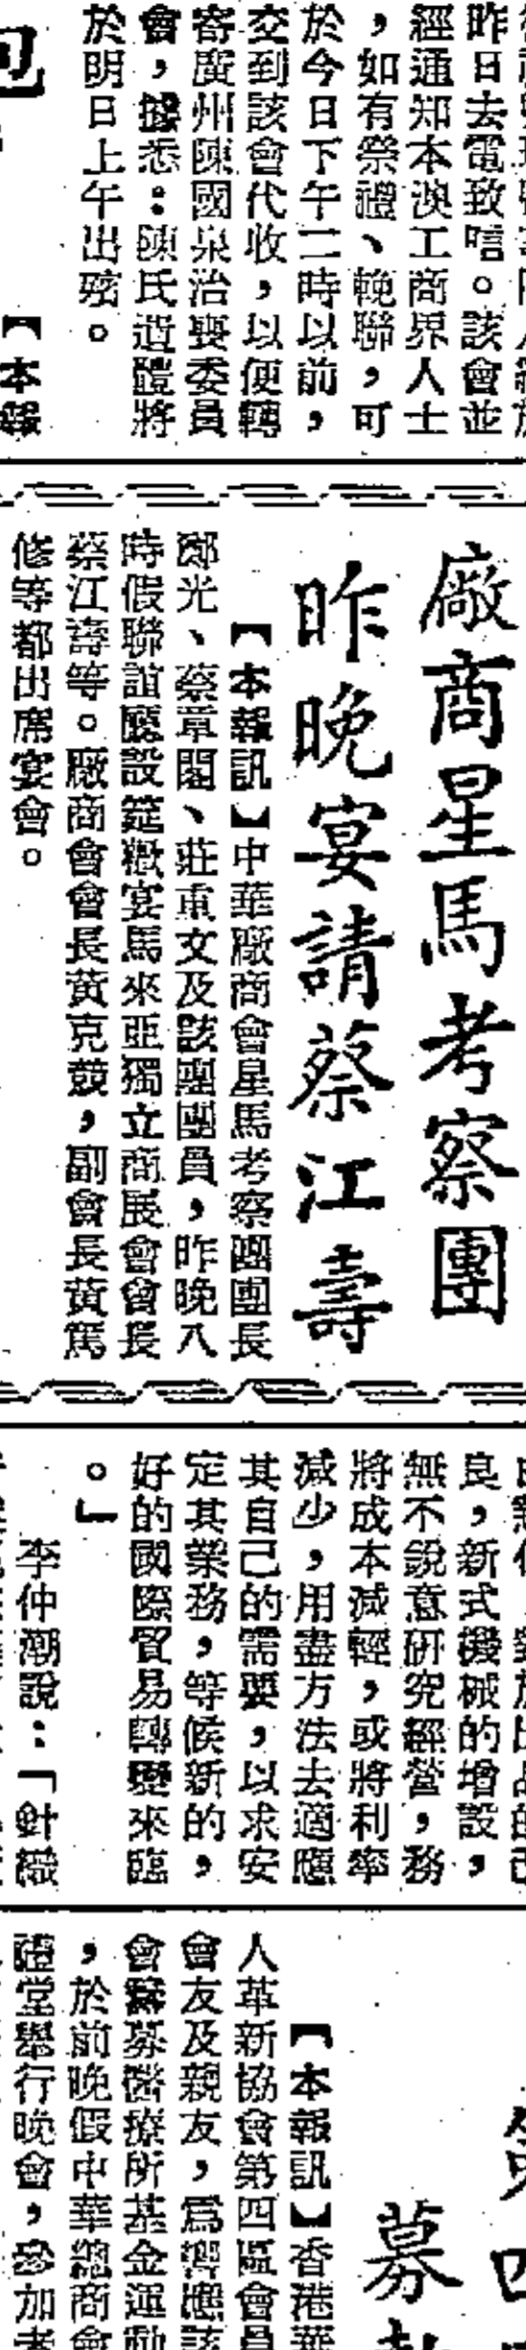 昨日去電致唁。該會並
經通知本澳工商界人士
，如有祭禮、輓聯，可
於今日下午二時以前，
交到該會代收，以便轉
寄廣州陳國泉治喪委員
會，據悉：陳氏遺體將
於明日上午出殯。
【本報
廠商星馬考察團
昨晚宴請蔡江壽
【本報訊】中華廠商會星馬考察團團長
鄭光、蔡章閣、莊重文及該團團員，昨晚八
時假聯誼廳設筵歡宴馬來亞獨立商展會會長
蔡江壽等。廠商會會長黃克競，副會長黃篤
修等都出席宴會。
良，新式機械的增設，
無不銳意研究經營，務
將成本減輕，或將利率
減少，用盡方法去適應
其自己的需要，以求安
定其業務，等候新的，
好的國際貿易轉變來臨
。」
李仲潮說：「針織
募
【本報訊】香港華
人革新協會第四區會員
會友及親友，爲響應該
會籌募醫療所基金運動
，於前晚假中華總商會
禮堂舉行晚會，參加者